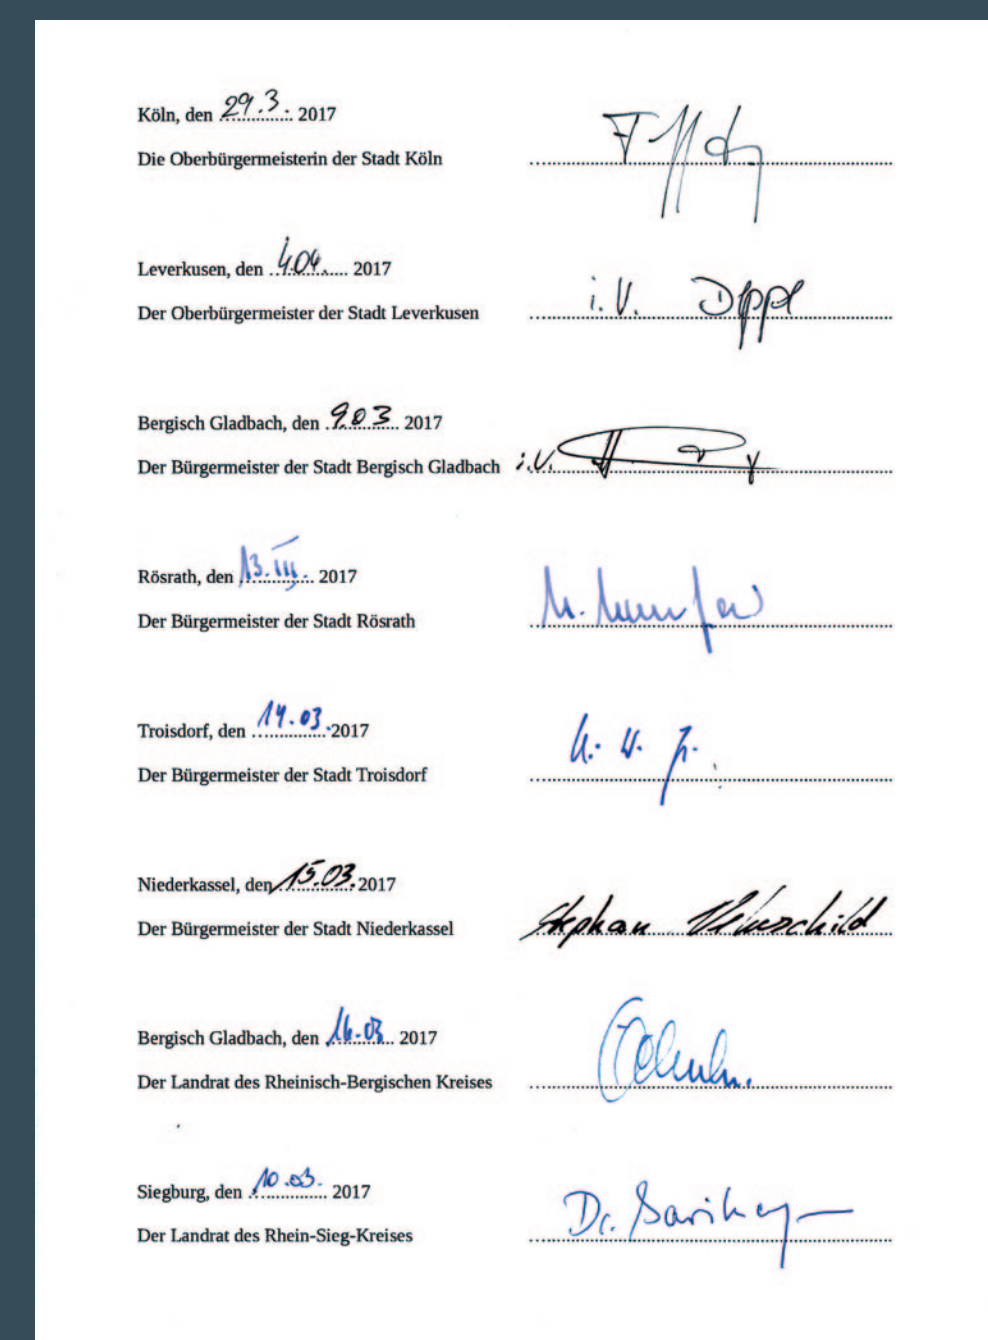 Köln, den 29.3. 2017
Die Oberbürgermeisterin der Stadt Köln
Leverkusen, den 4.04. 2017
Der Oberbürgermeister der Stadt Leverkusen i.V.
Bergisch Gladbach, den 9.03. 2017
Der Bürgermeister der Stadt Bergisch Gladbach i.V.
Rösrath, den 13.III. 2017
Der Bürgermeister der Stadt Rösrath
Troisdorf, den 14.03. 2017
Der Bürgermeister der Stadt Troisdorf
Niederkassel, den 15.03. 2017
Der Bürgermeister der Stadt Niederkassel Stephan
Bergisch Gladbach, den 16.03 2017
Der Landrat des Rheinisch-Bergischen Kreises
Siegburg, den 10.03. 2017
Der Landrat des Rhein-Sieg-Kreises Dr.